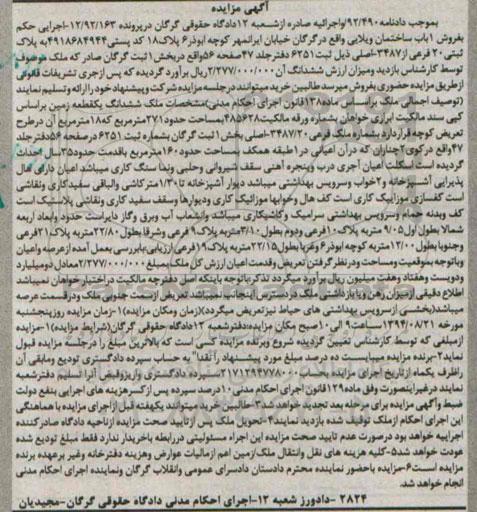 آگهی مزایده
بموجب دادنامه ۹۲/۴۹۰ واجرائیه صادره ازشعبه ۱۲دادگاه حقوقی گرگان درپرونده ۱۲/۹۲/۱۶۳-اجرایی حکم
بفروش ۱باب ساختمان ویلایی واقع درگرگان خیابان ایرانمهر کوچه ابوذر۶ پلاک۱۸ کد پستی۴۹۱۸۶۸۴۹۴۴به پلاک
ثبتی۲۰ فرعی از۳۴۸۷-اصلی ذیل ثبت۶۲۵۱ دفترجلد ۴۷صفحه ۵۶واقع دربخش۱ثبت گرگان صادر که ملک موصوف
توسط کارشناس بازدید ومیزان ارزش ششدانگ آن۲/۲۷۷/۰۰۰/۰۰۰ریال برآورد گردیده که پس ازجری تشریفات قانونی
ازطریق مزایده حضوری بفروش میرسد طالبین خرید میتوانند درجلسه مزایده شرکت وپیشنهاد خود را ارائه وتسلیم نمایند
(توصیف اجمالی ملک براساس ماده۱۳۸قانون اجرای احکام مدنی)مشخصات ملک ششدانگ یکقطعه زمین براساس
کپی سند مالکیت ابرازی خواهان بشماره ورقه مالکیت۴۸۵۶۲۸بمساحت حدود۲۷۱مترمربع که۱۸مترمربع آن درطرح
تعریض کوچه قراردارد بشماره ملک فرعی ۳۴۸۷/۲۰-اصلی بخش۱ثبت گرگان بشماره ثبت ۶۲۵۱ درصفحه ۵۶دفترجلد
۴۷واقع درکوی۲چناران که درآن اعیانی در۱طبقه همکف بمساحت حدود۱۶۰مترمربع باقدمت حدود۳۵سال احداث
گردیده است اسکلت اعیان آجری درب وپنجره آهنی سقف شیروانی وحلبی ونما سنگ کاری میباشد اعیان دارای هال
پذیرایی آشپزخانه و۲خواب وسرویس بهداشتی میباشد دیوار آشپزخانه تا۱/۳۰مترکاشی والباقی سفیدکاری ونقاشی
است کفسازی موزاییک کاری است کف هال وخوابها موزائیک کاری ودیوارها وسقف سفید کاری ونقاشی پلاستیک است
کف وبدنه حمام وسرویس بهداشتی سرامیک وکاشیکاری میباشد وانشعاب آب وبرق وگاز دایراست حدود وابعاد اربعه
شمالا بطول اول ۹/۰۵ متربه پلاک۱۰فرعی ودوم بطول۳/۱۰متربه پلاک۹ فرعی وشرقا بطول ۲۲/۸۰ متربه پلاک۲۱فرعی
وجنوبا بطول ۱۲/۰۰متربه کوچه ابوذر۶ وغربا بطول۲۲/۱۵متربه پلاک۱۹فرعی(ارزیابی)بابررسی بعمل آمده ازعرصه واعیان
وباتوجه بموقعیت ومساحت ودرنظر گرفتن تعریض وقدمت اعیان ارزش کل ملک بمبلغ۲/۲۷۷/۰۰۰/۰۰۰ معادل دومیلیارد
ودویست وهفتاد وهفت میلیون ریال برآورد میگردد تذکر:باتوجه باینکه اصل دفترچه مالکیت دراختیار خواهان نمیباشد
اطلاع دقیقی ازمیزان رهن ویا بازداشتی ملک دردسترس اینجانب نمیباشد تعریض ازسمت جنوبی ملک ودرقسمت عرصه
میباشد(بخشی ازسرویس بهداشتی های حیاط نیزتعریض میگردد)(زمان ومکان مزایده)۱-زمان مزایده روزپنجشنبه
مورخه ۱۳۹۴/۰۸/۲۱ ساعت۹ الی۱۰صبح مکان مزایده:دفترشعبه ۱۲دادگاه حقوقی گرگان(شرایط مزایده)۱-مزایده
ازمبلغی که توسط کارشناس تعیین گردیده شروع وبرنده مزایده کسی است که بالاترین مبلغ را درجلسه مزایده قبول
نماید۲-برنده مزایده میبایست ده درصد مبلغ مورد پیشنهاد را نقدا" به حساب سپرده دادگستری تودیع ومابقی آن
راظرف یکماه ازتاریخ اجرای مزایده بحساب سپرده دادگستری واریزوقبض آنرا تسلیم دفترشعبه
نماید درغیراینصورت وفق ماده۱۲۹قانون اجرای احکام مدنی ۱۰درصد سپرده پس ازکسرهزینه های اجرایی بنفع دولت
ضبط وآگهی مزایده برای مرحله بعد تجدید خواهد شد۳-طالبین خرید میتوانند یکهفته قبل ازاجرای مزایده با هماهنگی
این اجرای احکام ازملک توقیف شده بازدید نمایند۴-تحویل ملک پس ازتایید صحت مزایده ازناحیه دادگاه صادرکننده
اجراییه خواهد بود درصورت عدم تایید صحت مزایده این اجراء مسئولیتی دررابطه باخریدار ندارد فقط مبلغ تودیع شده
عودت خواهد شد۵-کلیه هزینه های نقل وانتقال ملک/زمین اعم ازمالیات عوارض وهزینه دفترخانه وغیر برعهده برنده
مزایده است۶-مزایده باحضور نماینده محترم دادستان دادسرای عمومی وانقلاب گرگان ونماینده اجرای احکام مدنی
انجام خواهد شد.
۲۸۲۴ -دادورز شعبه ۱۲-اجرای احکام مدنی دادگاه حقوقی گرگان-مجیدیان